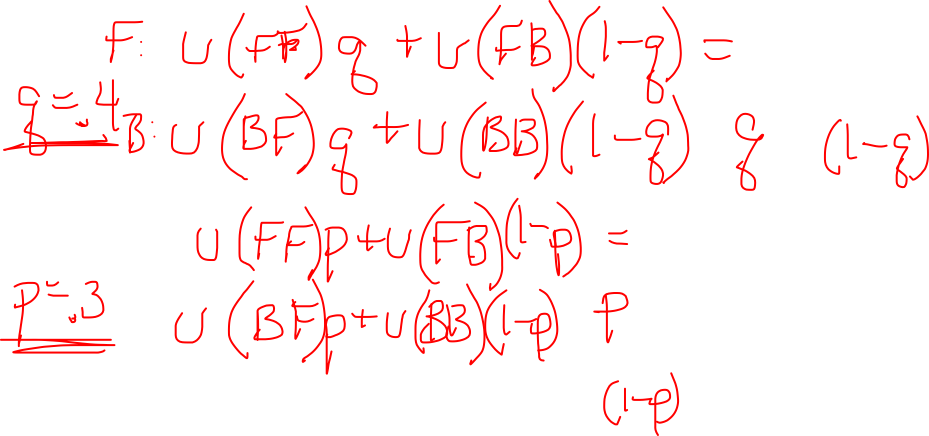 F: U(FF)q + U(FB)(1-q) =
q = .4 B: U(BF)q + U(BB)(1-q) q (1-q)
U(FF)p + U(FB)(1-p) =
p = .3 U(BF)p + U(BB)(1-p) p
(1-p)